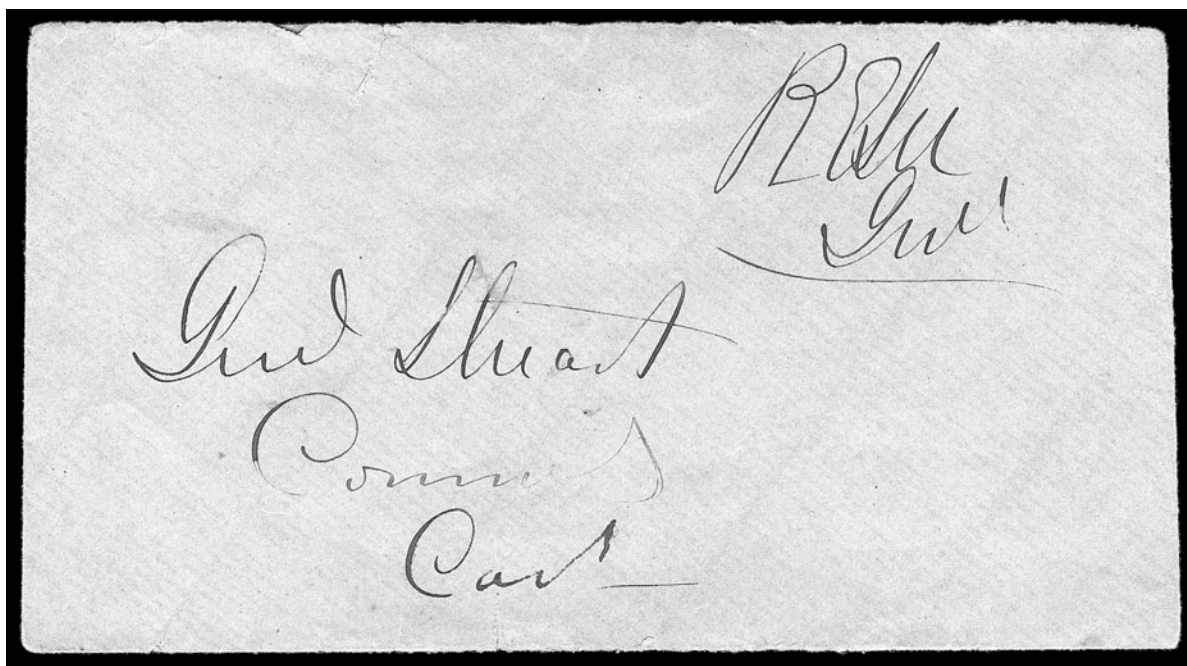 R E Lee
Genl
Genl Stuart
Commdg
Cavy